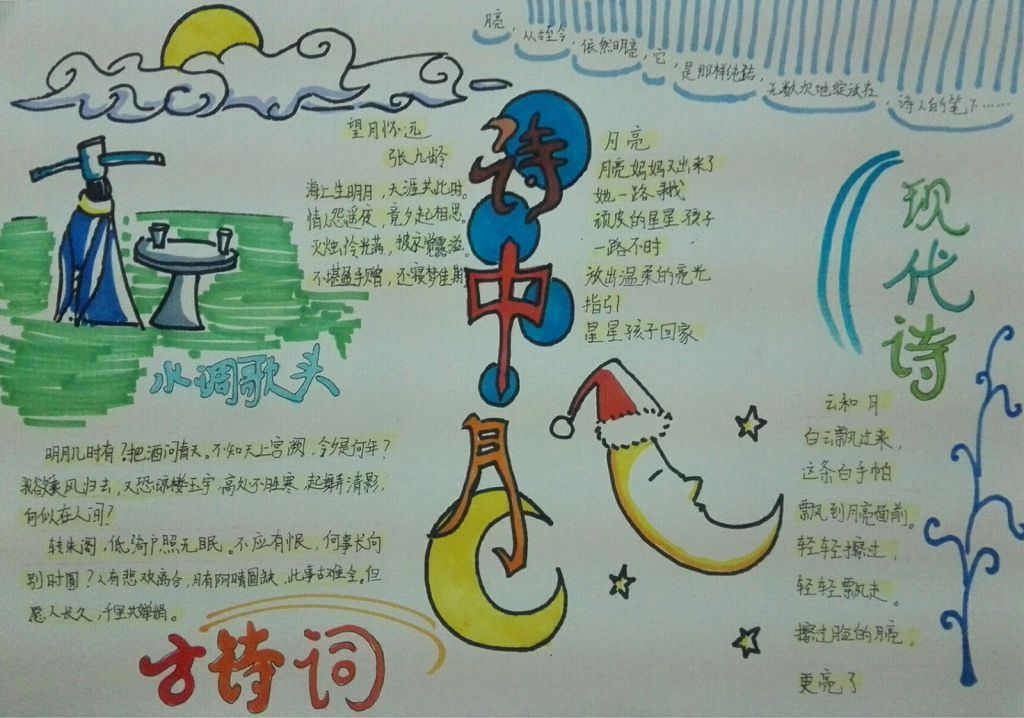 月亮，从古至今，依然明亮，它，是那样纯洁，无数次地绽放在，诗人的笔下……
诗中月
望月怀远
张九龄
海上生明月，天涯共此时。
情人怨遥夜，竟夕起相思。
灭烛怜光满，披衣觉露滋。
不堪盈手赠，还寝梦佳期
水调歌头
明月几时有？把酒问青天。不知天上宫阙，今夕是何年？
我欲乘风归去，又恐琼楼玉宇，高处不胜寒，起舞弄清影，
何似在人间？
转朱阁，低绮户照无眠。不应有恨，何事长向
别时圆？人有悲欢离合，月有阴晴圆缺，此事古难全。但
愿人长久，千里共婵娟。
古诗词
月亮
月亮妈妈又出来了
她一路找
顽皮的星星孩子
一路不时
放出温柔的亮光
指引
星星孩子回家
现代诗
云和月
白云飘过来，
这条白手帕
飘到月亮面前。
轻轻擦过，
轻轻飘走。
擦过脸的月亮，
更亮了